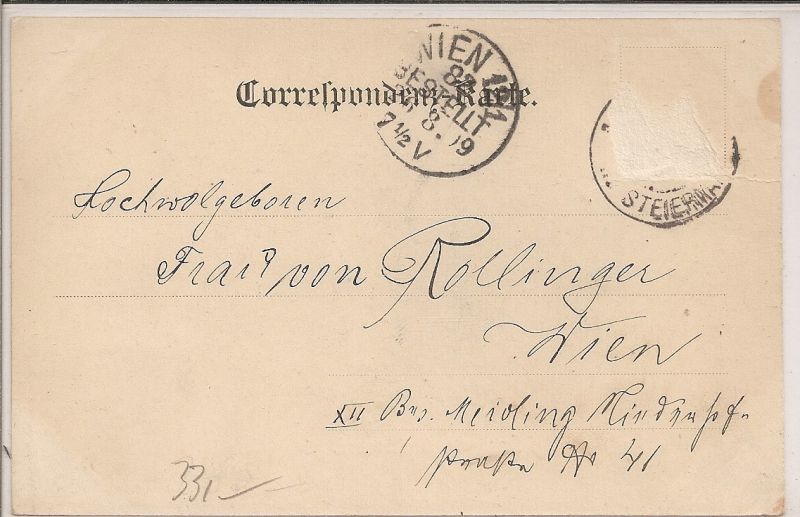 Correspondenz-Karte.
WIEN 12/1
82
BESTELLT
8. 99
7 1/2 V
STEIERMA
Hochwolgeboren
Frau von Rollinger
Wien
XII Bez. Meidling Niederhof-
straße Nr 41
331